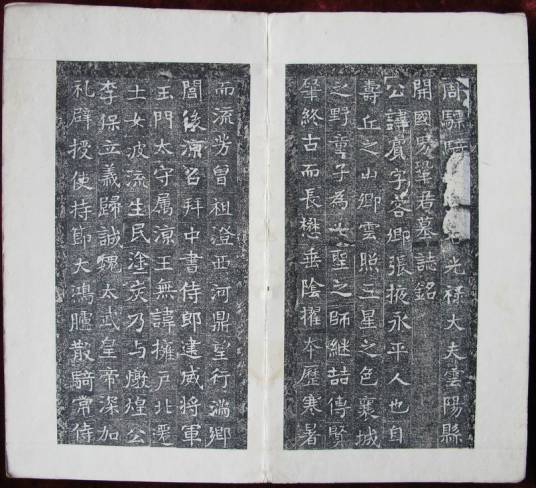 周驃騎右光祿大夫雲陽縣
開國男鞏君墓誌銘
公諱賓字客卿張掖永平人也自
壽丘之山卿雲照三星之色襄城
之野童子為七聖之師継喆傳賢
肇終古而長懋垂陰擢夲歷寒暑
而流芳曾祖澄西河鼎望行滿鄉
閭後涼召拜中書侍郎建威將軍
玉門太守属涼王無諱擁戶北遷
士女波流生民塗炭乃与燉煌公
李保立義歸誠魏太武皇帝深加
礼辟授使持節大鴻臚散騎常侍